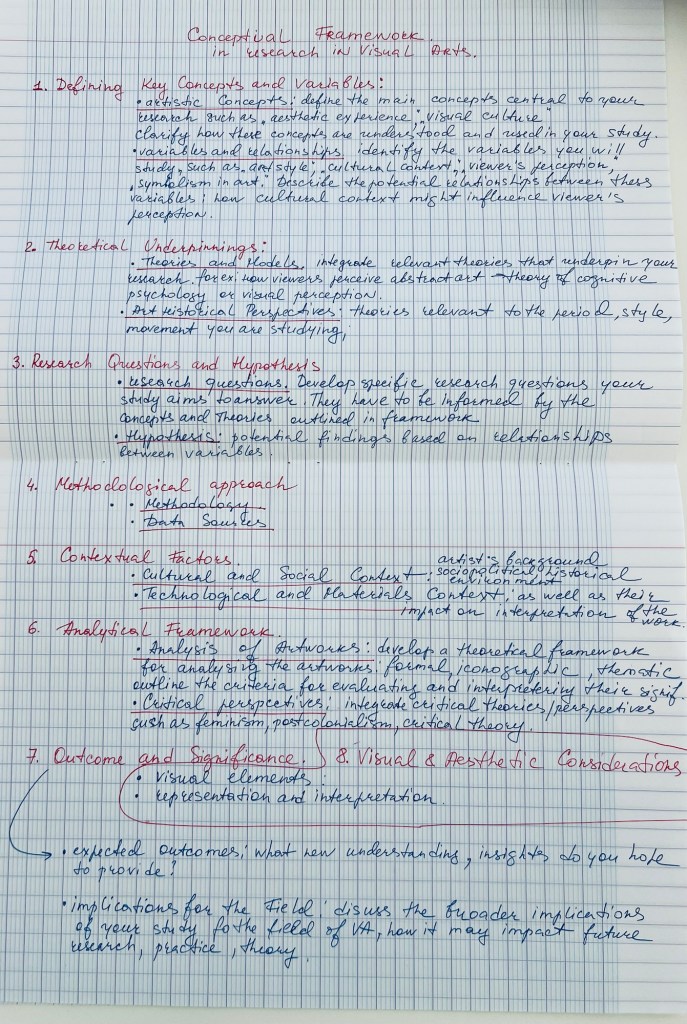 Conceptual Framework.
in research in Visual Arts.
1. Defining Key Concepts and Variables:
• artistic Concepts: define the main concepts central to your
research such as „aesthetic experience", "visual culture"
Clarify how these concepts are understood and used in your study.
• variables and relationships, identify the variables you will
study, such as „art style", „cultural context", „viewer's perception",
„symbolism in art." Describe the potential relationships between these
variables; how cultural context might influence viewer's
perception.
2. Theoretical Underpinnings:
• Theories and Models, integrate relevant theories that underpin your
research. for ex: how viewers perceive abstract art - theory of cognitive
psychology or visual perception.
• Art Historical Perspectives: theories relevant to the period, style,
movement you are studying,
3. Research Questions and Hypothesis
• research questions. Develop specific research questions your
study aims to answer. They have to be informed by the
concepts and theories outlined in framework
• Hypothesis: potential findings based on relationships
between variables.
4. Methodological approach
• • Methodology
• Data Sources
5. Contextual Factors.
• Cultural and Social Context: artist's background
sociopolitical, historical
environment
• Technological and Materials Context, as well as their
impact on interpretation of the
work.
6. Analytical Framework.
• Analysis of Artworks: develop a theoretical framework
for analysing the artworks: formal, iconographic, thematic,
outline the criteria for evaluating and interpretering their signif.
• Critical perspectives; integrate critical theories/perspectives
such as feminism, postcolonialism, critical theory.
7. Outcome and Significance.
8. Visual & Aesthetic Considerations
• visual elements
• representation and interpretation
• expected outcomes; what new understanding, insights do you hope
to provide?
• implications for the Field: discuss the broader implications
of your study fo the field of VA, how it may impact future
research, practice, theory.